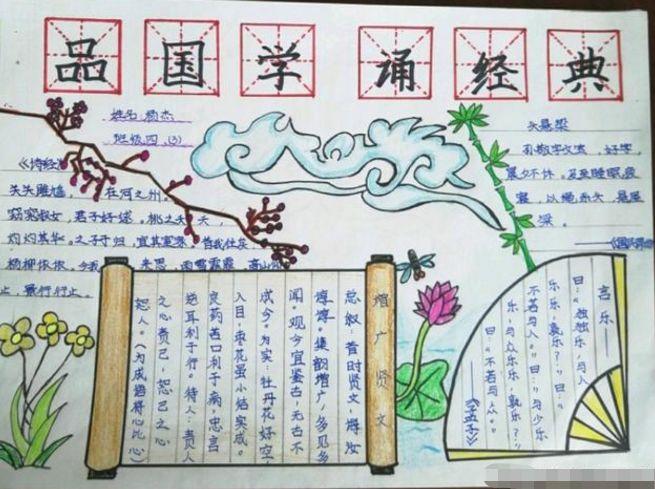 品国学 诵经典
姓名:杨杰
班级:四.(3)
《诗经》
关关雎鸠,在河之洲。
窈窕淑女,君子好逑。桃之夭夭,
灼灼其华。之子于归,宜其室家。昔我往矣,
杨柳依依。今我来思,雨雪霏霏。高山仰
止,景行行止。
头悬梁
孙敬字文宝,好学,
晨夕不休。及至睡眠疲
寝,以绳系头,悬屋
梁。
增广贤文
总叙:昔时贤文,诲汝
谆谆。集韵增广,多见多
闻。观今宜鉴古,无古不
成今。为实:牡丹花好空
入目,枣花虽小结实成。
良药苦口利于病,忠言
逆耳利于行。待人:责人
之心责己,恕己之心
恕人。(为成语将心比心)
言乐——
曰:“独乐乐,与人乐
乐,孰乐?”曰:“
不若与人。”曰:“与少乐
乐,与众乐乐,孰乐?”
曰:“不若与众。”
《孟子》